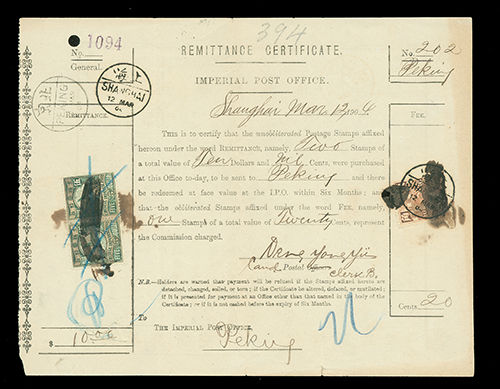 394
No. 1094
General.
REMITTANCE CERTIFICATE.
No. 202
Peking
IMPERIAL POST OFFICE.
SHANGHAI
12 MAR
04
PEKING
Shanghai Mar. 12, 1904.
REMITTANCE.
FEE.
This is to certify that the unobliterated Postage Stamps affixed
hereon under the word REMITTANCE, namely, Two Stamps
of a total value of Ten Dollars and Nil Cents, were purchased
at this Office to-day, to be sent to Peking and there
be redeemed at face value at the I.P.O. within Six Months; and
that the obliterated Stamps affixed under the word FEE, namely,
one Stamps of a total value of Twenty cents, represent
the Commission charged.
SHANGHAI
12 MAR
Postal
Clerk B.
N.B.—Holders are warned that payment will be refused if the Stamps affixed hereto are
detached, changed, soiled, or torn; if the Certificate be altered, defaced, or mutilated;
if it is presented for payment at an Office other than that named in the body of the
Certificate; or if it is not cashed before the expiry of Six Months.
Cents 20
To
THE IMPERIAL POST OFFICE,
Peking
$ 10.00